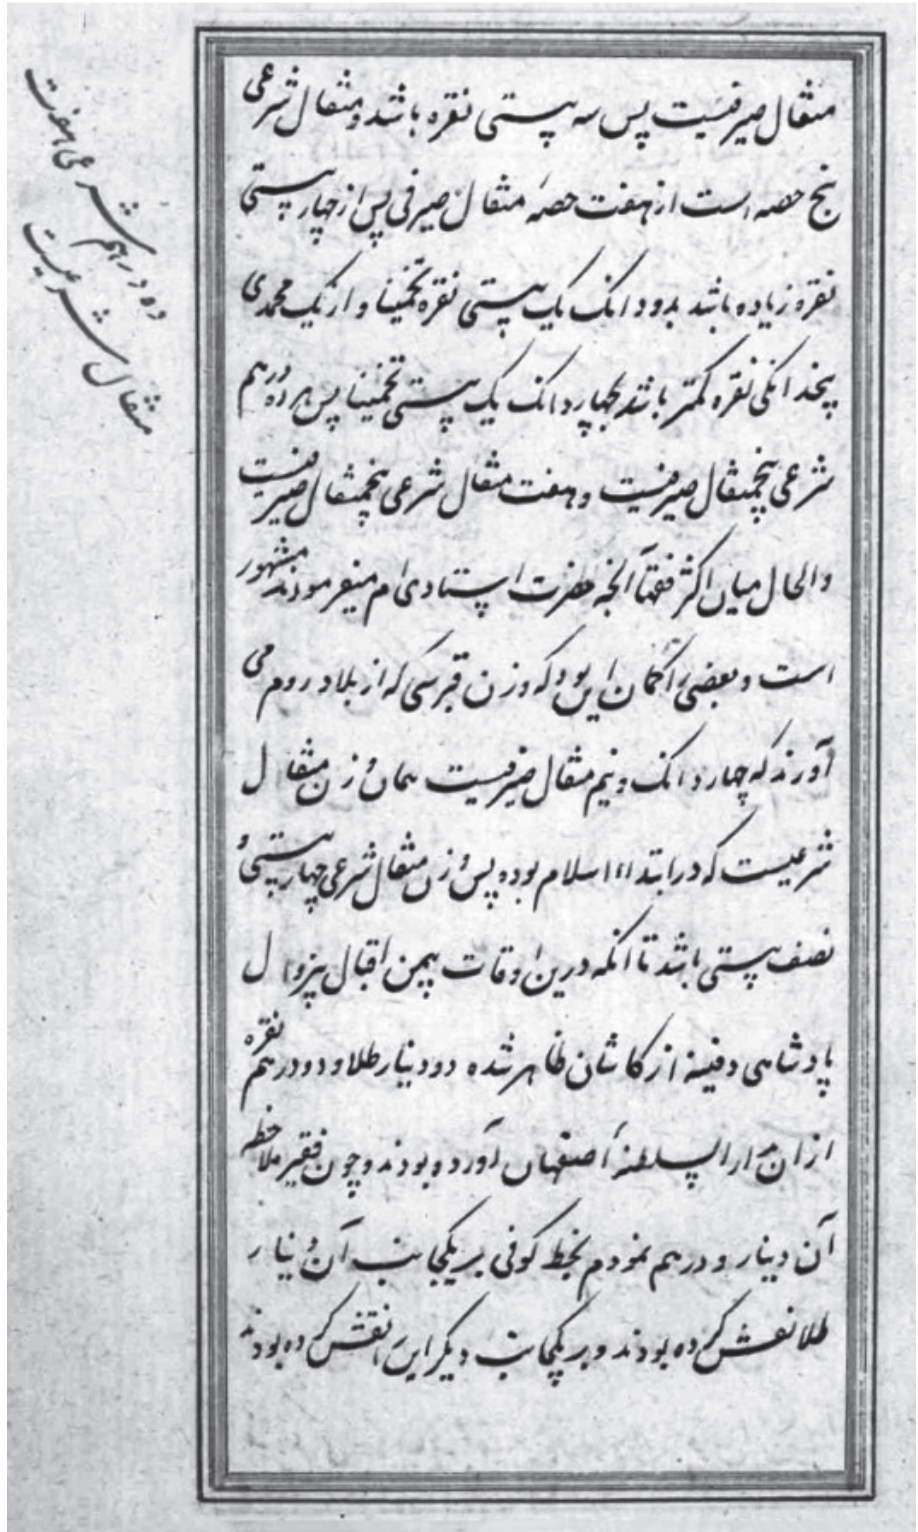 مثقال صیرفیست پس سه بیستی نقره باشد و مثقال شرعی
پنج حصه است از هفت حصهٔ مثقال صیرفی پس از چهار بیستی
نقره زیاده باشد بدو دانک یک بیستی نقره تخمینا و از یک محمدی
پنجدانکی نقره کمتر باشد بچهار دانک یک بیستی تخمینا پس هر ده درهم
شرعی پنجمثقال صیرفیست و هفت مثقال شرعی پنجمثقال صیرفیست
والحال میان اکثر فقها آنچه حضرت استادی ام میفرمودند مشهور
است و بعضی را کمان این بود که وزن قبرسی که از بلاد روم می
آورند که چهار دانک و نیم مثقال صیرفیست همان وزن مثقال
شرعیست که در ابتداء اسلام بوده پس وزن مثقال شرعی چهار بیستی و
نصف بیستی باشد تا آنکه درین اوقات بیمن اقبال بیزوال
پادشاهی دفینه از کاشان ظاهر شده دو دینار طلا و دو درهم نقره
از ان بدار السلطنهٔ اصفهان آورده بودند و چون فقیر ملاحظه
آن دینار و درهم نمودم بخط کوفی بر یکجانب آن دینار
طلا نقش کرده بودند و بر یکجانب دیکر این نقش کرده بودند
ده درهم شرعی هفت
مثقال شرعیست